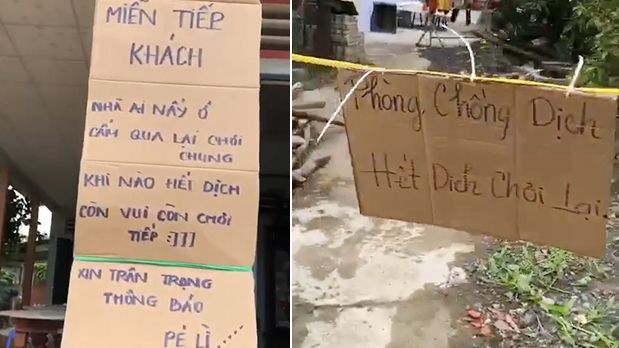 MIỄN TIẾP
KHÁCH
NHÀ AI NẤY Ở
CẤM QUA LẠI CHƠI
CHUNG
KHI NÀO HẾT DỊCH
CÒN VUI CÒN CHƠI
TIẾP :]]]
XIN TRÂN TRỌNG
THÔNG BÁO
PÉ LÌ.....
Phòng, Chống Dịch
Hết Dịch Chơi Lại.